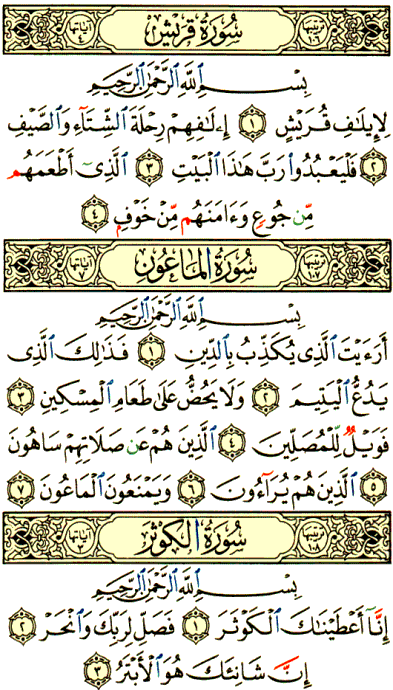 ترتيبها ١٠٦ سورة قريش آياتها ٤
بِسْمِ اللَّهِ الرَّحْمَٰنِ الرَّحِيمِ
لِإِيلَافِ قُرَيْشٍ ١ إِۦلَافِهِمْ رِحْلَةَ ٱلشِّتَآءِ وَٱلصَّيْفِ
٢ فَلْيَعْبُدُوا۟ رَبَّ هَٰذَا ٱلْبَيْتِ ٣ ٱلَّذِىٓ أَطْعَمَهُم
مِّن جُوعٍ وَءَامَنَهُم مِّنْ خَوْفٍ ٤
ترتيبها ١٠٧ سورة الماعون آياتها ٧
بِسْمِ اللَّهِ الرَّحْمَٰنِ الرَّحِيمِ
أَرَءَيْتَ ٱلَّذِى يُكَذِّبُ بِٱلدِّينِ ١ فَذَٰلِكَ ٱلَّذِى
يَدُعُّ ٱلْيَتِيمَ ٢ وَلَا يَحُضُّ عَلَىٰ طَعَامِ ٱلْمِسْكِينِ ٣
فَوَيْلٌ لِّلْمُصَلِّينَ ٤ ٱلَّذِينَ هُمْ عَن صَلَاتِهِمْ سَاهُونَ
٥ ٱلَّذِينَ هُمْ يُرَآءُونَ ٦ وَيَمْنَعُونَ ٱلْمَاعُونَ ٧
ترتيبها ١٠٨ سورة الكوثر آياتها ٣
بِسْمِ اللَّهِ الرَّحْمَٰنِ الرَّحِيمِ
إِنَّآ أَعْطَيْنَٰكَ ٱلْكَوْثَرَ ١ فَصَلِّ لِرَبِّكَ وَٱنْحَرْ ٢
إِنَّ شَانِئَكَ هُوَ ٱلْأَبْتَرُ ٣